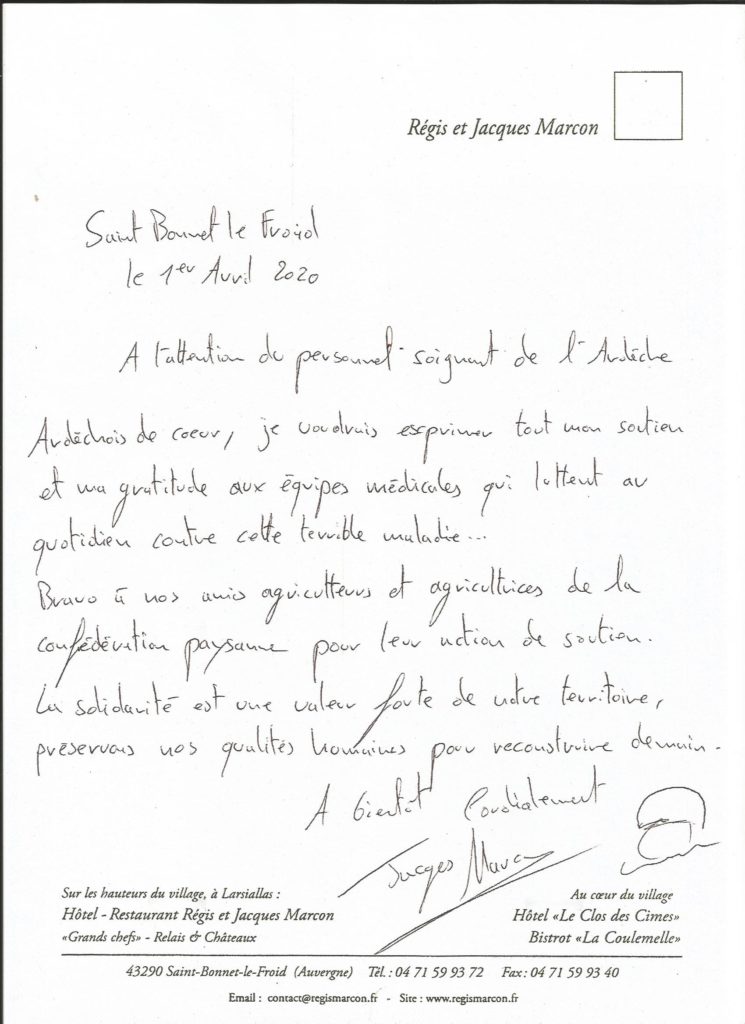 Régis et Jacques Marcon
Saint Bonnet le Froid
le 1er Avril 2020
A l'attention du personnel soignant de l'Ardèche
Ardéchois de coeur, je voudrais exprimer tout mon soutien
et ma gratitude aux équipes médicales qui luttent au
quotidien contre cette terrible maladie...
Bravo à nos amis agriculteurs et agricultrices de la
confédération paysanne pour leur action de soutien.
La solidarité est une valeur forte de notre territoire,
préservons nos qualités humaines pour reconstruire demain.
A bientôt Cordialement
Jacques Marcon
Sur les hauteurs du village, à Larsiallas :
Hôtel - Restaurant Régis et Jacques Marcon
«Grands chefs» - Relais & Châteaux
Au cœur du village
Hôtel «Le Clos des Cimes»
Bistrot «La Coulemelle»
43290 Saint-Bonnet-le-Froid (Auvergne) Tél. : 04 71 59 93 72 Fax : 04 71 59 93 40
Email : contact@regismarcon.fr - Site : www.regismarcon.fr